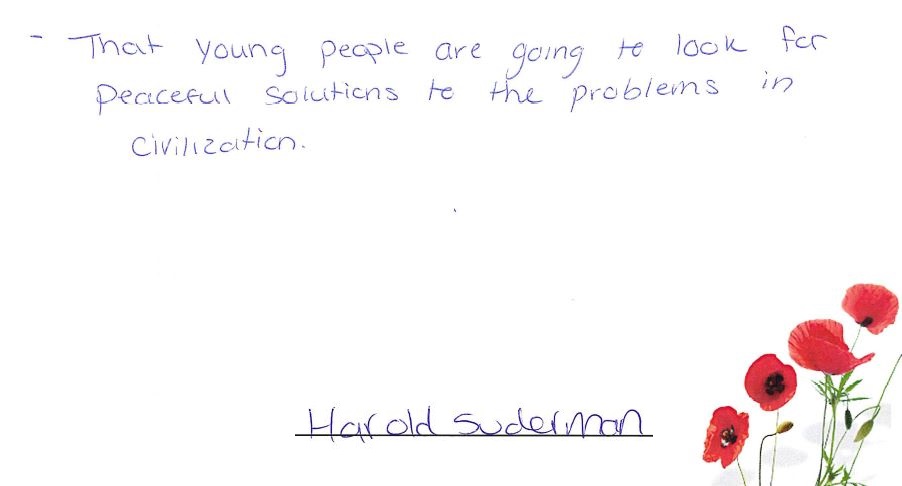 - That young people are going to look for
peaceful solutions to the problems in
civilization.
Harold Suderman